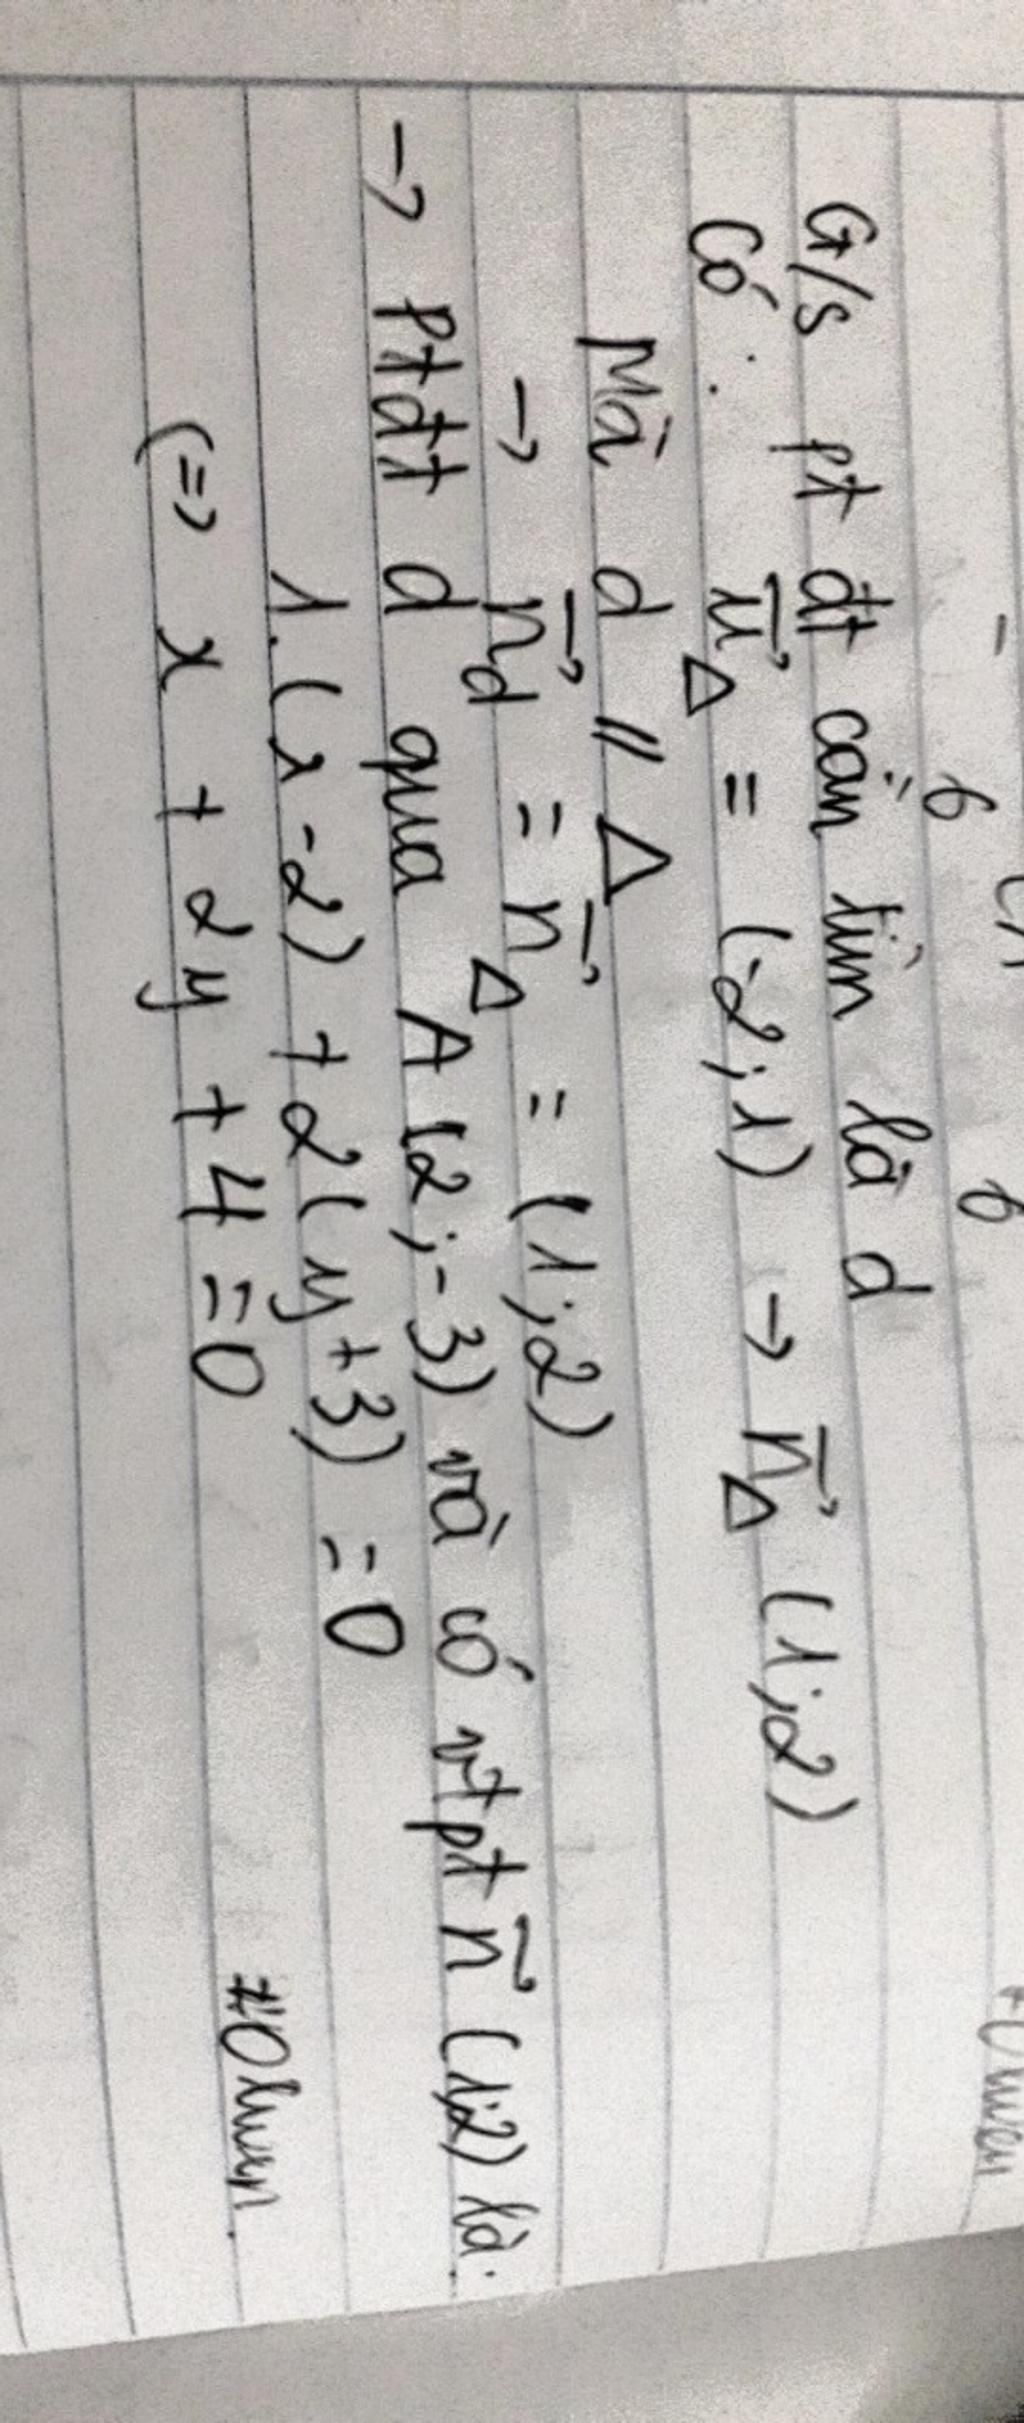 G/s pt đt cần tìm là d
Có: u⃗Δ = (-2;1) → n⃗Δ (1;2)
Mà d // Δ
→ n⃗d = n⃗Δ = (1;2)
→ Ptđt d qua A (2;-3) và có vtpt n⃗ (1;2) là:
1.(x-2) + 2(y+3) = 0
(=> x + 2y + 4 = 0